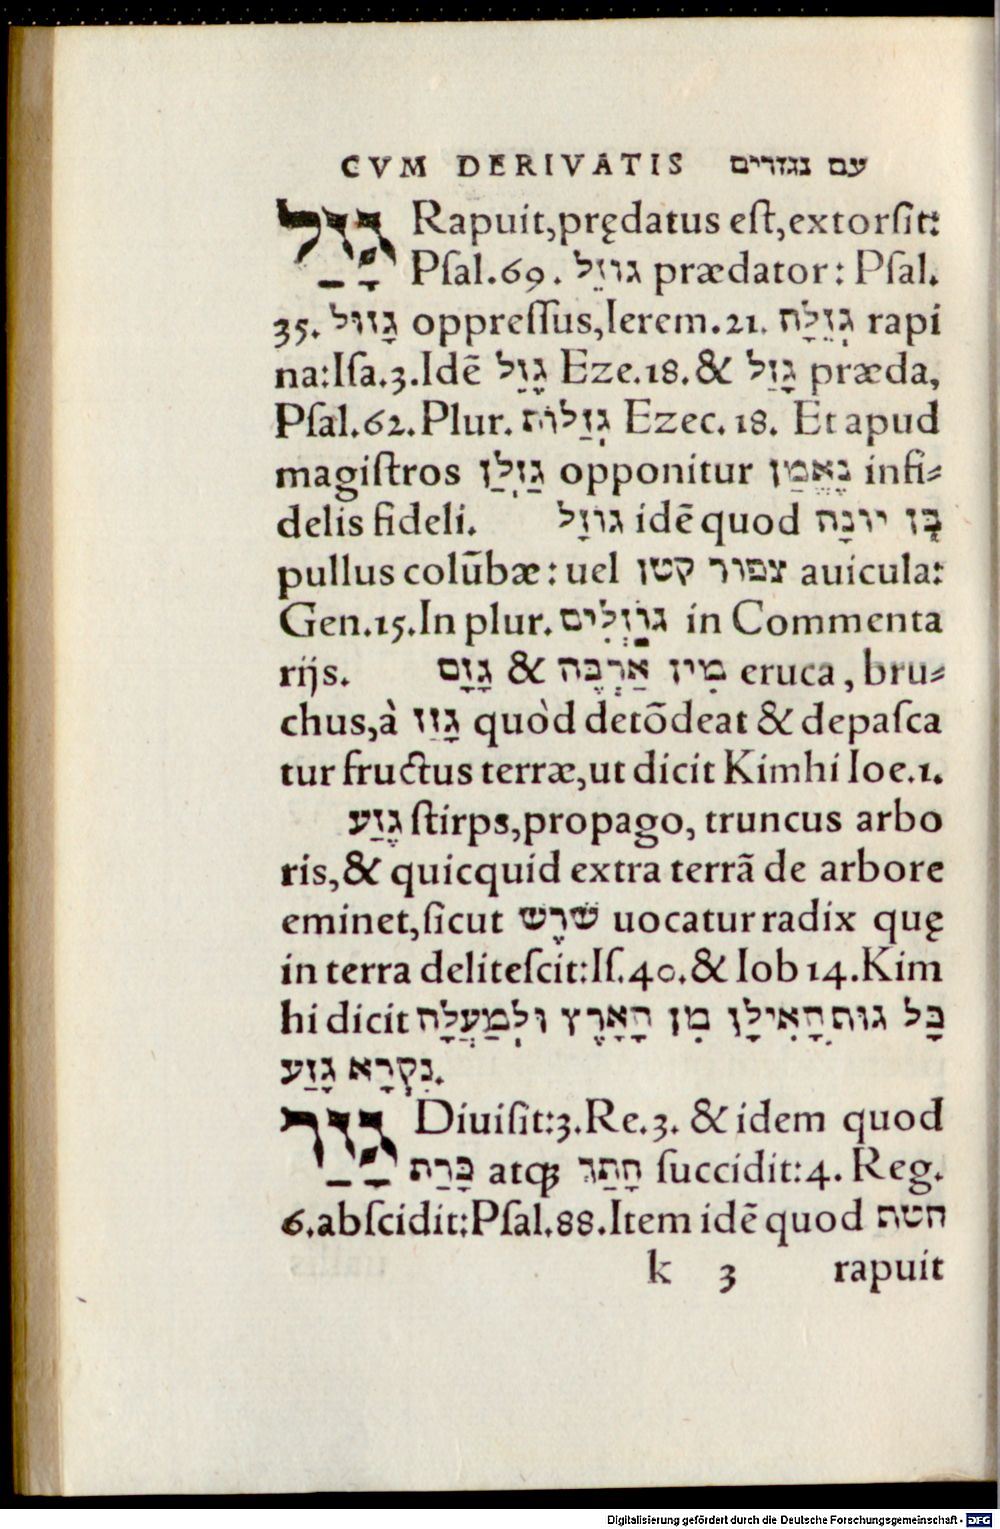 CVM DERIVATIS עם נגזרים
גָּזַל Rapuit,prędatus eſt,extorſit:
Pſal.69. גוזֵל prædator: Pſal.
35. גָּזוּל oppreſſus,Ierem.21. גְּזֵלָה rapi
na:Iſa.3.Idē גָּזֵל Eze.18.& גָּזֵל præda,
Pſal.62.Plur. גְּזֵלוֹת Ezec.18. Et apud
magiſtros גַּזְלָן opponitur נֶאֱמַן infi⸗
delis fideli. גוזָל idē quod בֶּן יונָה
pullus colūbæ:uel צפור קטן auicula:
Gen.15.In plur. גוֹזָלִים in Commenta
rijs. גָּזָם & מִין אַרְבֶּה eruca, bru⸗
chus,à גָּזַז quòd detōdeat & depaſca
tur fructus terræ,ut dicit Kimhi Ioe.1.
גֶּזַע ſtirps,propago, truncus arbo
ris,& quicquid extra terrā de arbore
eminet,ſicut שֹׁרֶשׁ uocatur radix quę
in terra deliteſcit:Iſ.40.& Iob 14.Kim
hi dicit כָּל גות הָאִילָן מִן הָאָרֶץ וּלְמַעֲלָה
נִקְרָא גָּזַע.
גָּזַר Diuiſit:3.Re.3. & idem quod
כָּרַת atqꝫ חָתַךְ ſuccidit:4. Reg.
6.abſcidit:Pſal.88.Item idē quod חטף
k 3 rapuit
Digitalisierung gefördert durch die Deutsche Forschungsgemeinschaft - DFG